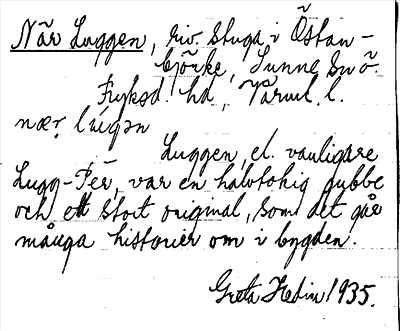 När Luggen, riv. stuga i Östan-
björke, Sunne sn ö.
Fryksd. hd, Värml. l.
næṛ lúgən
Luggen, el. vanligare
Lugg-Per, var en halvtokig gubbe
och ett stort original, som det går
många historier om i bygden.
Greta Hedin 1935.